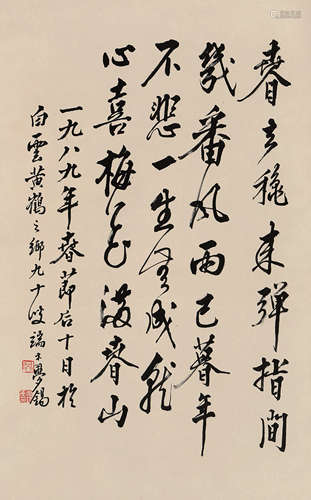 春去秋来弹指间
几番风雨已暮年
不悲一生无成就
心喜梅花满春山
一九八九年春节后十日於
白雲黄鹤之鄉九十叟瑞